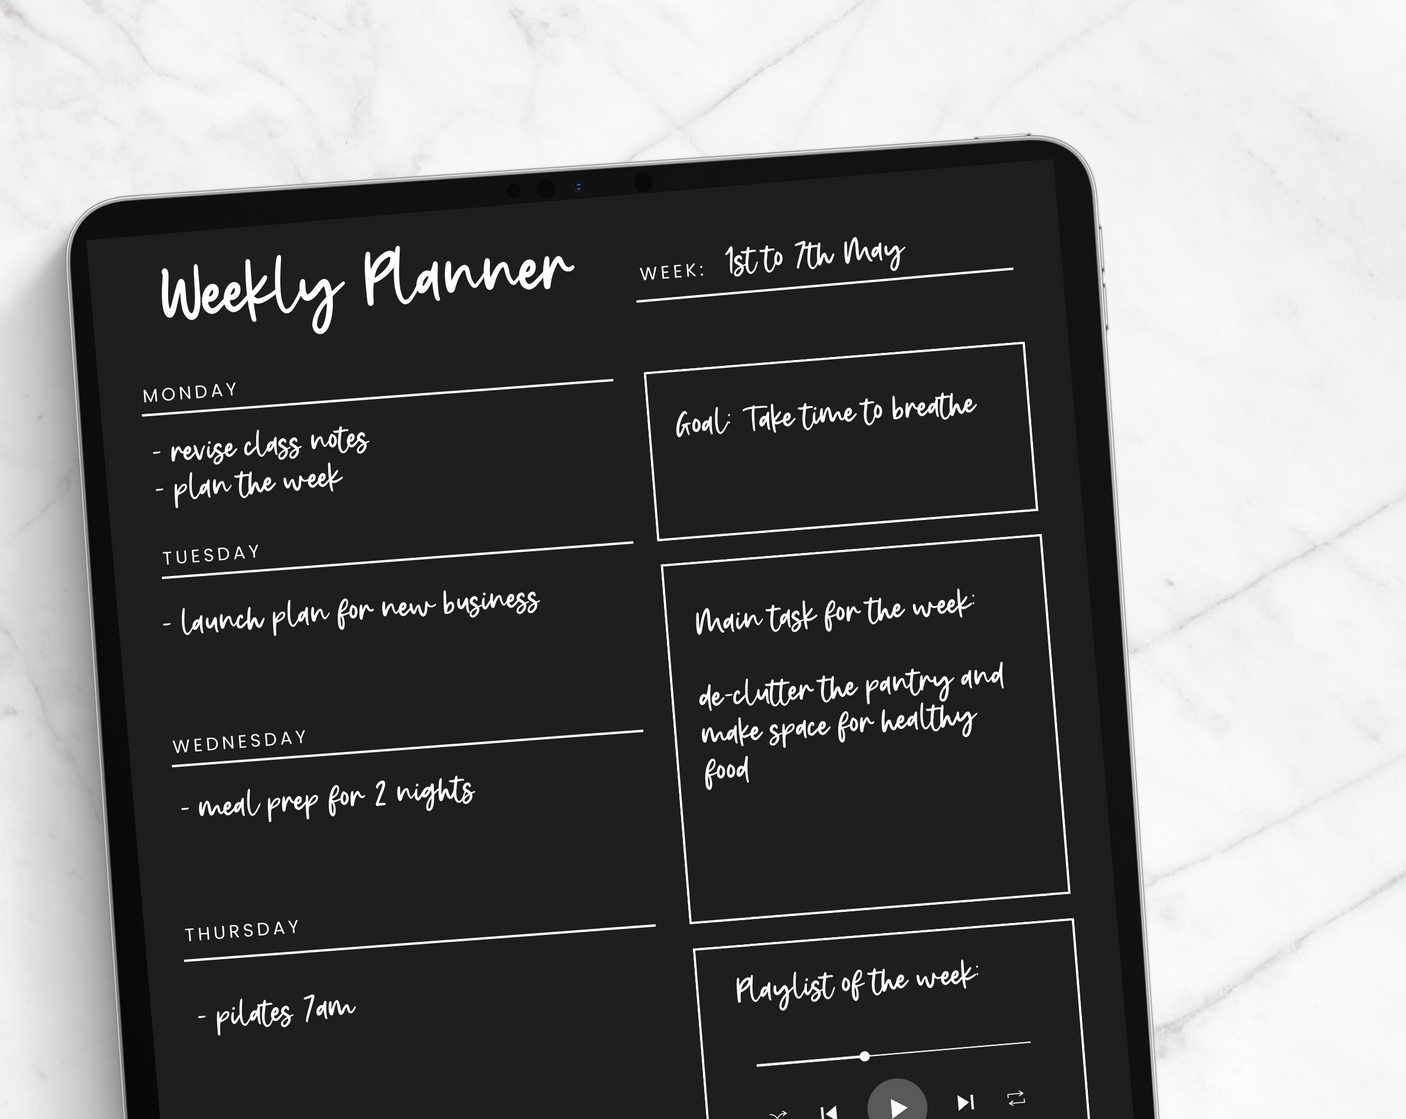 Weekly Planner
WEEK: 1st to 7th May
MONDAY
- revise class notes
- plan the week
TUESDAY
- launch plan for new business
WEDNESDAY
- meal prep for 2 nights
THURSDAY
- pilates 7am
Goal: Take time to breathe
Main task for the week:
de-clutter the pantry and
make space for healthy
food
Playlist of the week: